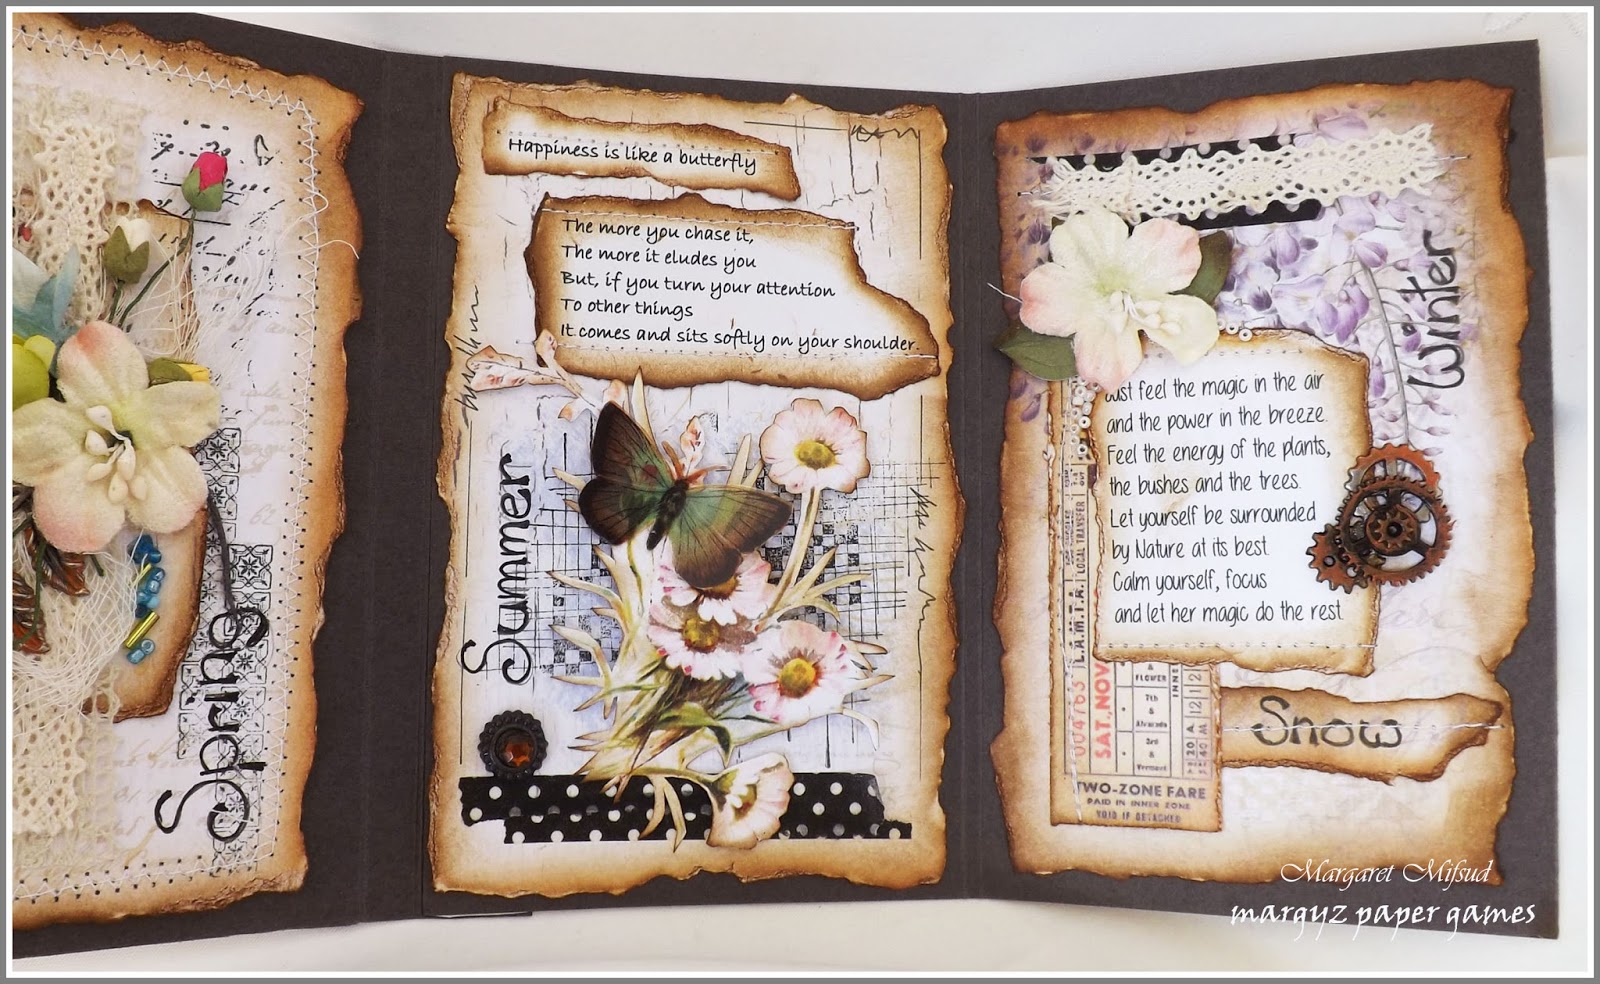 Spring
Happiness is like a butterfly
The more you chase it,
The more it eludes you
But, if you turn your attention
To other things
It comes and sits softly on your shoulder.
Summer
Winter
Just feel the magic in the air
and the power in the breeze.
Feel the energy of the plants,
the bushes and the trees.
Let yourself be surrounded
by Nature at its best
Calm yourself, focus
and let her magic do the rest
L.A.M.T.A.
LOCAL TRANSFER
004765
SAT., NOV
INNE
& FLOWER
7th
&
Alvarado
3rd
&
Vermont
TWO-ZONE FARE
PAID IN INNER ZONE
VOID IF DETACHED
Snow
Margaret Mifsud
margyz paper games